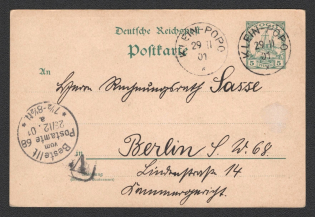 Deutsche Reichspost
Postkarte
KLEIN-POPO
29 11
01
KLEIN-POPO
29 11
01
5 5
An
Herrn Rechnungsrath Sasse
Bestellt
vom
Postamte 68
22/12. 01
7½-8½N.
a
in
Berlin S.W. 68.
Lindenstraße 14
Kammergericht.